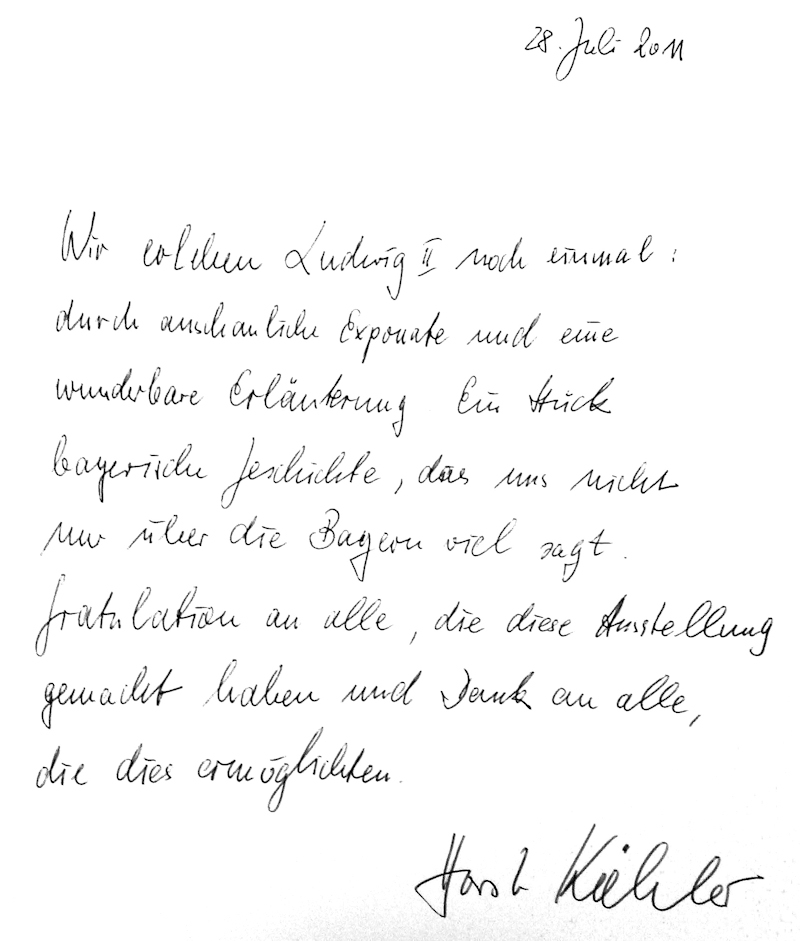 28. Juli 2011
Wir erleben Ludwig II noch einmal:
durch anschauliche Exponate und eine
wunderbare Erläuterung Ein Stück
bayerische Geschichte, das uns nicht
nur über die Bayern viel sagt.
Gratulation an alle, die diese Ausstellung
gemacht haben und Dank an alle,
die dies ermöglichten.
Horst Köhler